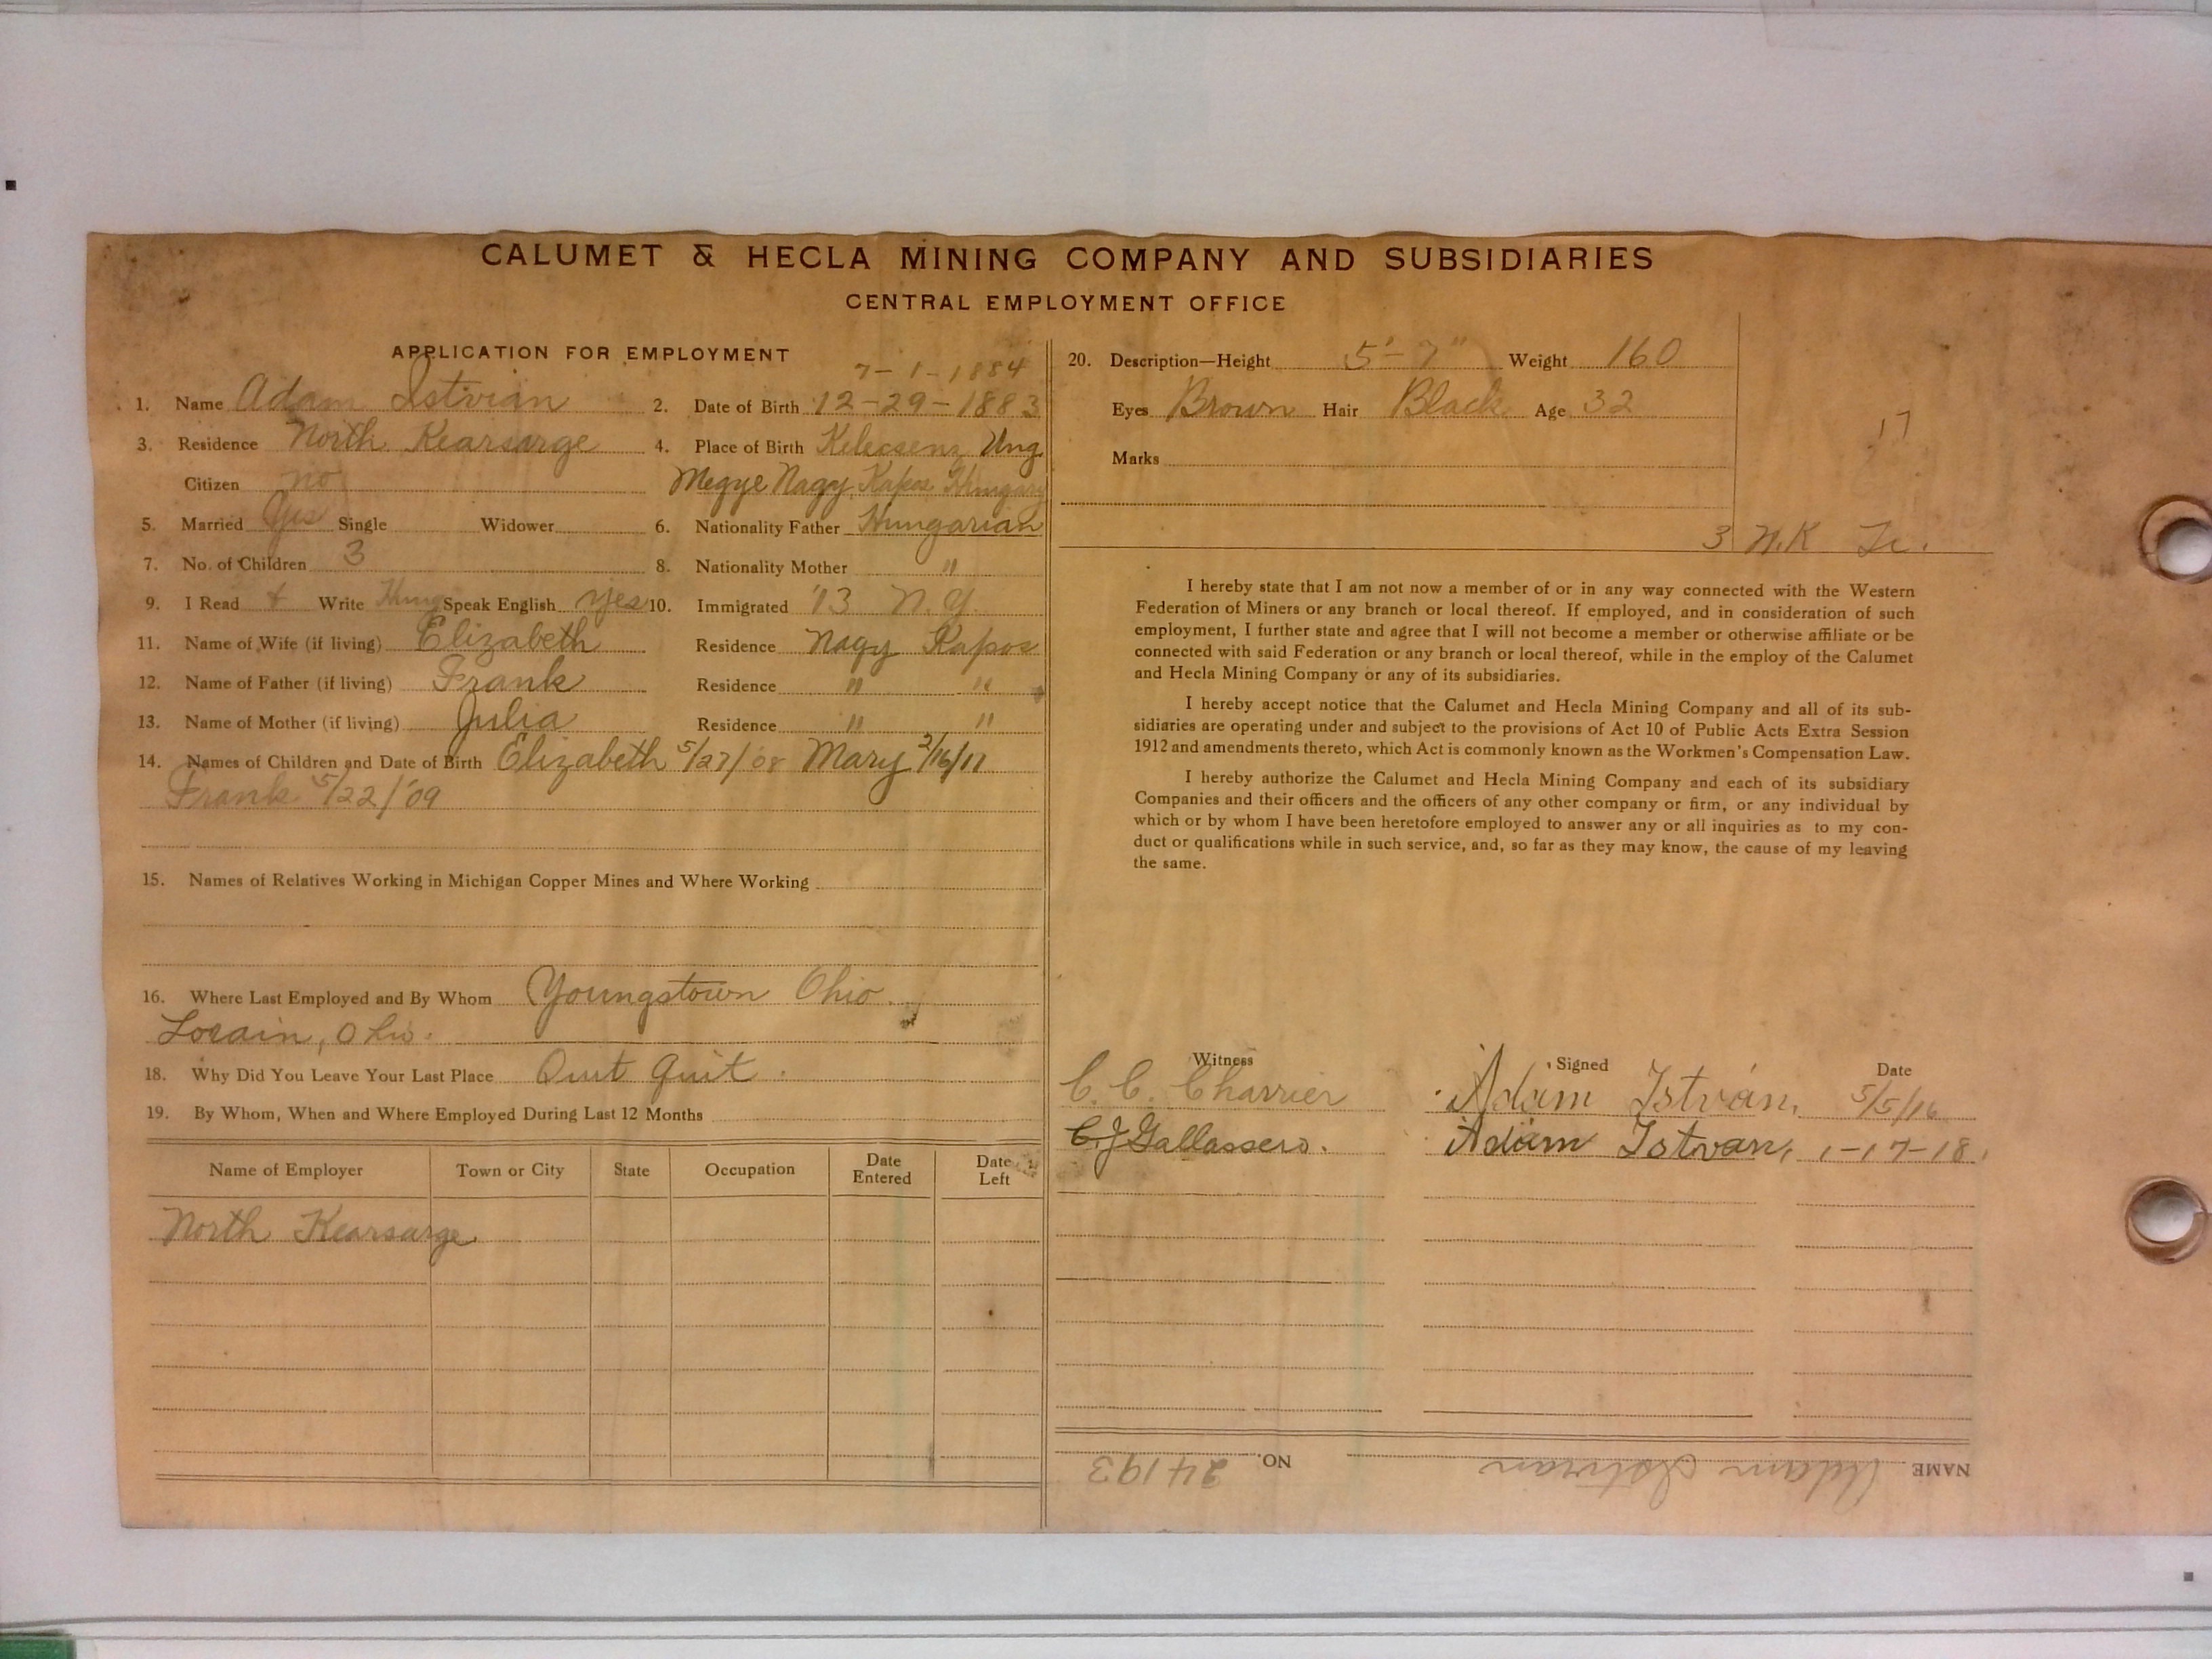 CALUMET & HECLA MINING COMPANY AND SUBSIDIARIES
CENTRAL EMPLOYMENT OFFICE
APPLICATION FOR EMPLOYMENT
7-1-1884
1. Name Adam Istvian 2. Date of Birth 12-29-1883
3. Residence North Kearsarge 4. Place of Birth Kelecsenz Ung
Citizen no Megye Nagy Kapos Hungary
5. Married Yes Single Widower 6. Nationality Father Hungarian
7. No. of Children 3 8. Nationality Mother "
9. I Read + Write Hung Speak English yes 10. Immigrated '13 N.Y.
11. Name of Wife (if living) Elizabeth Residence Nagy Kapos
12. Name of Father (if living) Frank Residence " "
13. Name of Mother (if living) Julia Residence " "
14. Names of Children and Date of Birth Elizabeth 5/27/08 Mary 2/16/11
Frank 5/22/'09
15. Names of Relatives Working in Michigan Copper Mines and Where Working
16. Where Last Employed and By Whom Youngstown Ohio
Lorain, Ohio.
18. Why Did You Leave Your Last Place Quit Quit.
19. By Whom, When and Where Employed During Last 12 Months
Name of Employer Town or City State Occupation Date Entered Date Left
North Kearsarge
20. Description—Height 5'-7" Weight 160
Eyes Brown Hair Black Age 32
17
Marks
3 N.K Tr.
I hereby state that I am not now a member of or in any way connected with the Western
Federation of Miners or any branch or local thereof. If employed, and in consideration of such
employment, I further state and agree that I will not become a member or otherwise affiliate or be
connected with said Federation or any branch or local thereof, while in the employ of the Calumet
and Hecla Mining Company or any of its subsidiaries.
I hereby accept notice that the Calumet and Hecla Mining Company and all of its sub-
sidiaries are operating under and subject to the provisions of Act 10 of Public Acts Extra Session
1912 and amendments thereto, which Act is commonly known as the Workmen's Compensation Law.
I hereby authorize the Calumet and Hecla Mining Company and each of its subsidiary
Companies and their officers and the officers of any other company or firm, or any individual by
which or by whom I have been heretofore employed to answer any or all inquiries as to my con-
duct or qualifications while in such service, and, so far as they may know, the cause of my leaving
the same.
Witness Signed Date
C. C. Charrier Adam István, 5/5/16
C J Gallassero. Adám Istvan, 1-17-18.
NAME Adam Istvian NO. 24193